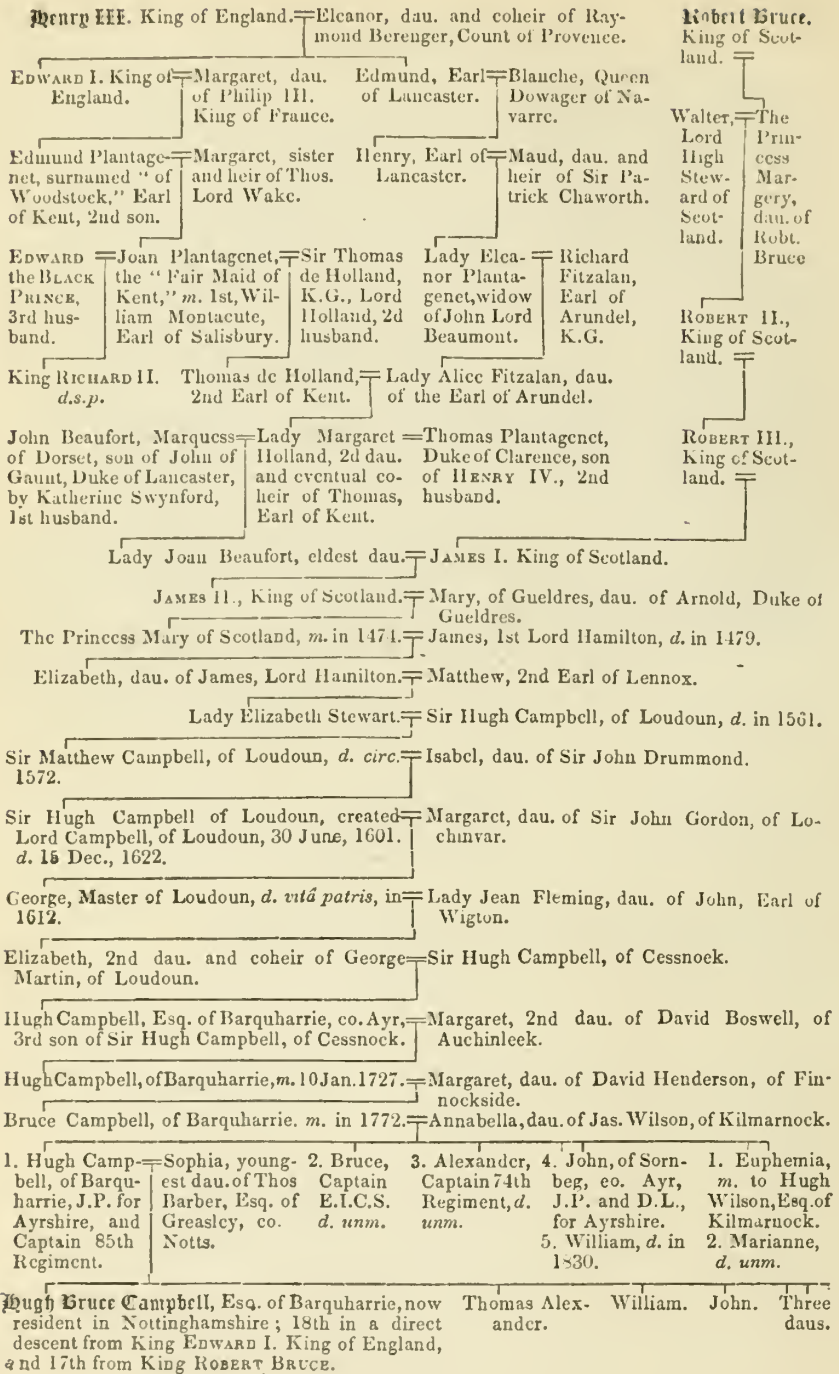 Henry III. King of England.=Eleanor, dau. and coheir of Ray-
mond Berenger, Count of Provence.
Robert Bruce.
King of Scot-
land.
EDWARD I. King of
England.
Margaret, dau.
of Philip III.
King of France.
Edmund, Earl
of Lancaster.
Blanche, Queen
Dowager of Na-
varre.
Walter,
Lord
High
Stew-
ard of
Scot-
land.
The
Prin-
cess
Mar-
gery,
dau. of
Robt.
Bruce
Edmund Plantage-
net, surnamed "of
Woodstock," Earl
of Kent, 2nd son.
Margaret, sister
and heir of Thos.
Lord Wake.
Henry, Earl of
Lancaster.
Maud, dau. and
heir of Sir Pa-
trick Chaworth.
EDWARD
the BLACK
PRINCE,
3rd hus-
band.
Joan Plantagenet,
the "Fair Maid of
Kent," m. 1st, Wil-
liam Montacute,
Earl of Salisbury.
Sir Thomas
de Holland,
K.G., Lord
Holland, 2d
husband.
Lady Elea-
nor Planta-
genet, widow
of John Lord
Beaumont.
Richard
Fitzalan,
Earl of
Arundel,
K.G.
ROBERT II.,
King of Scot-
land.
King RICHARD II.
d.s.p.
Thomas de Holland,
2nd Earl of Kent.
Lady Alice Fitzalan, dau.
of the Earl of Arundel.
John Beaufort, Marquess
of Dorset, son of John of
Gaunt, Duke of Lancaster,
by Katherine Swynford,
1st husband.
Lady Margaret
Holland, 2d dau.
and eventual co-
heir of Thomas,
Earl of Kent.
Thomas Plantagenet,
Duke of Clarence, son
of HENRY IV., 2nd
husband.
ROBERT III.,
King of Scot-
land.
Lady Joan Beaufort, eldest dau.=JAMES I. King of Scotland.
JAMES II., King of Scotland.=Mary, of Gueldres, dau. of Arnold, Duke of
Gueldres.
The Princess Mary of Scotland, m. in 1474.=James, 1st Lord Hamilton, d. in 1479.
Elizabeth, dau. of James, Lord Hamilton.=Matthew, 2nd Earl of Lennox.
Lady Elizabeth Stewart.=Sir Hugh Campbell, of Loudoun, d. in 1561.
Sir Matthew Campbell, of Loudoun, d. circ.=Isabel, dau. of Sir John Drummond.
1572.
Sir Hugh Campbell of Loudoun, created=Margaret, dau. of Sir John Gordon, of Lo-
Lord Campbell, of Loudoun, 30 June, 1601. chinvar.
d. 15 Dec., 1622.
George, Master of Loudoun, d. vitâ patris, in=Lady Jean Fleming, dau. of John, Earl of
1612. Wigton.
Elizabeth, 2nd dau. and coheir of George=Sir Hugh Campbell, of Cessnock.
Martin, of Loudoun.
Hugh Campbell, Esq. of Barquharrie, co. Ayr,=Margaret, 2nd dau. of David Boswell, of
3rd son of Sir Hugh Campbell, of Cessnock. Auchinleek.
Hugh Campbell, of Barquharrie, m. 10 Jan. 1727.=Margaret, dau. of David Henderson, of Fin-
nockside.
Bruce Campbell, of Barquharrie. m. in 1772.=Annabella, dau. of Jas. Wilson, of Kilmarnock.
1. Hugh Camp-
bell, of Barqu-
harrie, J.P. for
Ayrshire, and
Captain 85th
Regiment.
Sophia, young-
est dau. of Thos
Barber, Esq. of
Greasley, co.
Notts.
2. Bruce,
Captain
E.I.C.S.
d. unm.
3. Alexander,
Captain 74th
Regiment, d.
unm.
4. John, of Sorn-
beg, co. Ayr,
J.P. and D.L.,
for Ayrshire.
5. William, d. in
1830.
1. Euphemia,
m. to Hugh
Wilson, Esq. of
Kilmarnock.
2. Marianne,
d. unm.
Hugh Bruce Campbell, Esq. of Barquharrie, now
resident in Nottinghamshire; 18th in a direct
descent from King EDWARD I. King of England,
and 17th from King ROBERT BRUCE.
Thomas Alex-
ander.
William.
John.
Three
daus.